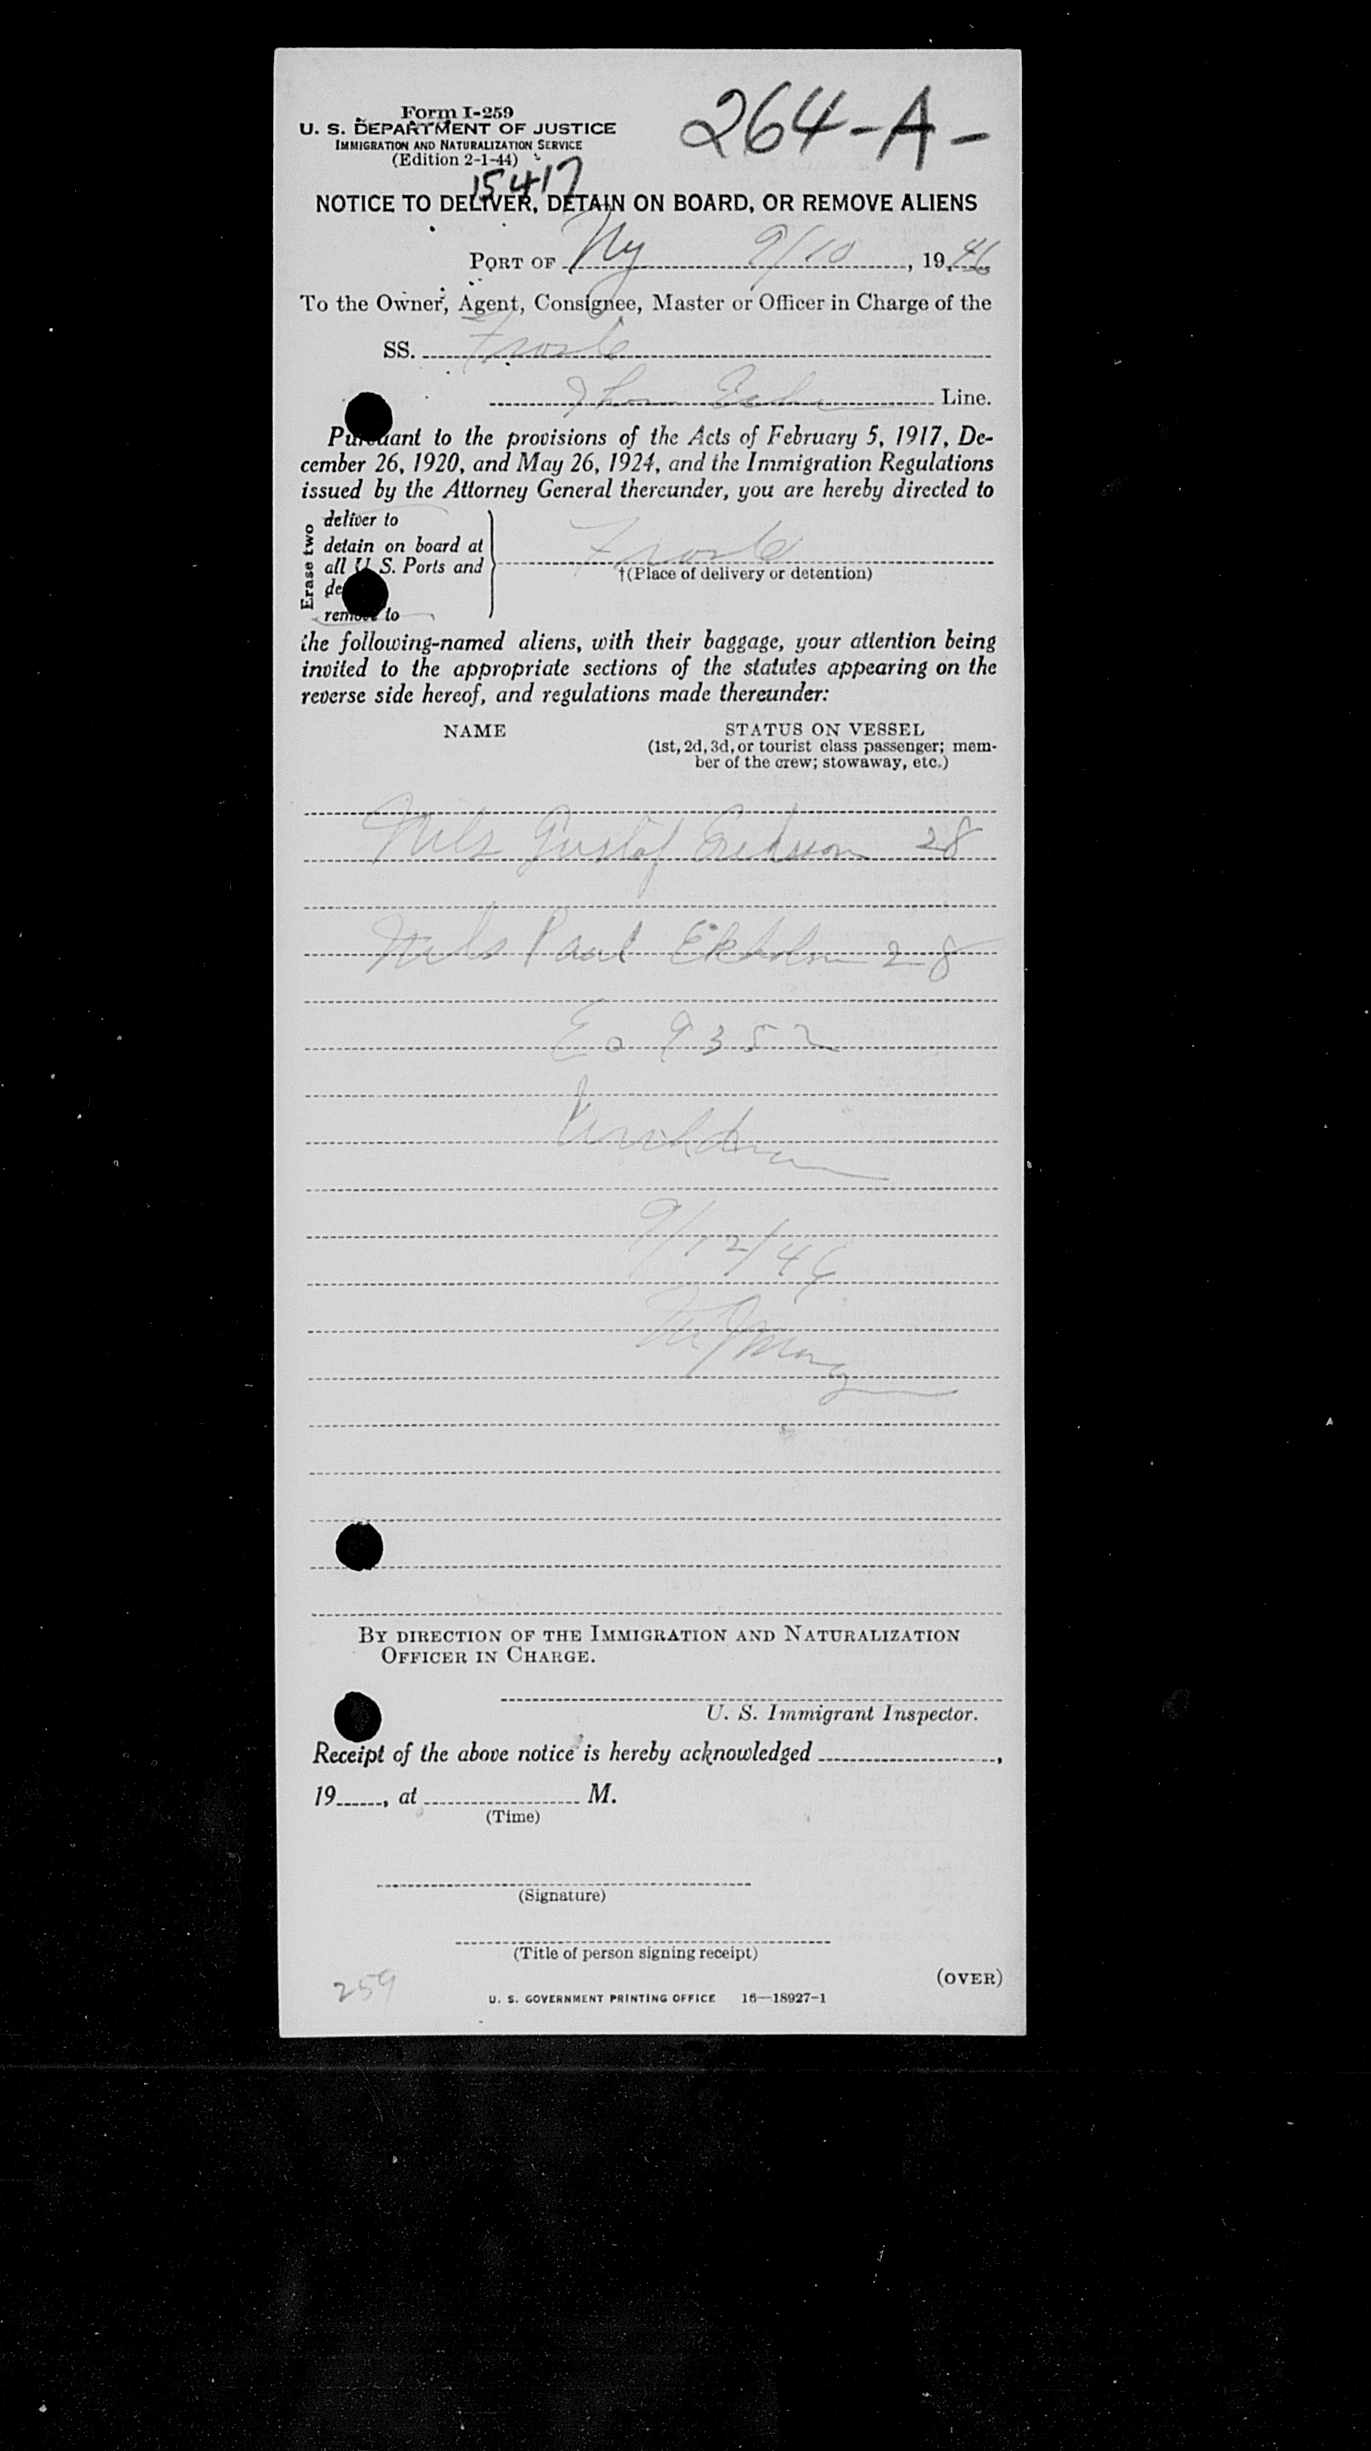 Form I-259
264-A-
U. S. DEPARTMENT OF JUSTICE
IMMIGRATION AND NATURALIZATION SERVICE
(Edition 2-1-44)
15417
NOTICE TO DELIVER, DETAIN ON BOARD, OR REMOVE ALIENS
PORT OF Ny 9/10, 1946
To the Owner, Agent, Consignee, Master or Officer in Charge of the
SS.
Line.
Pursuant to the provisions of the Acts of February 5, 1917, De-
cember 26, 1920, and May 26, 1924, and the Immigration Regulations
issued by the Attorney General thereunder, you are hereby directed to
Erase two
deliver to
detain on board at
all U. S. Ports and
de
remove to
†(Place of delivery or detention)
the following-named aliens, with their baggage, your attention being
invited to the appropriate sections of the statutes appearing on the
reverse side hereof, and regulations made thereunder:
NAME STATUS ON VESSEL
(1st, 2d, 3d, or tourist class passenger; mem-
ber of the crew; stowaway, etc.)
Nils Gustaf Erikson 28
Nils Paul Ekholm 28
Eo 9352
9/12/46
BY DIRECTION OF THE IMMIGRATION AND NATURALIZATION
OFFICER IN CHARGE.
U. S. Immigrant Inspector.
Receipt of the above notice is hereby acknowledged ,
19 , at M.
(Time)
(Signature)
(Title of person signing receipt)
(OVER)
259
U. S. GOVERNMENT PRINTING OFFICE 16—18927-1